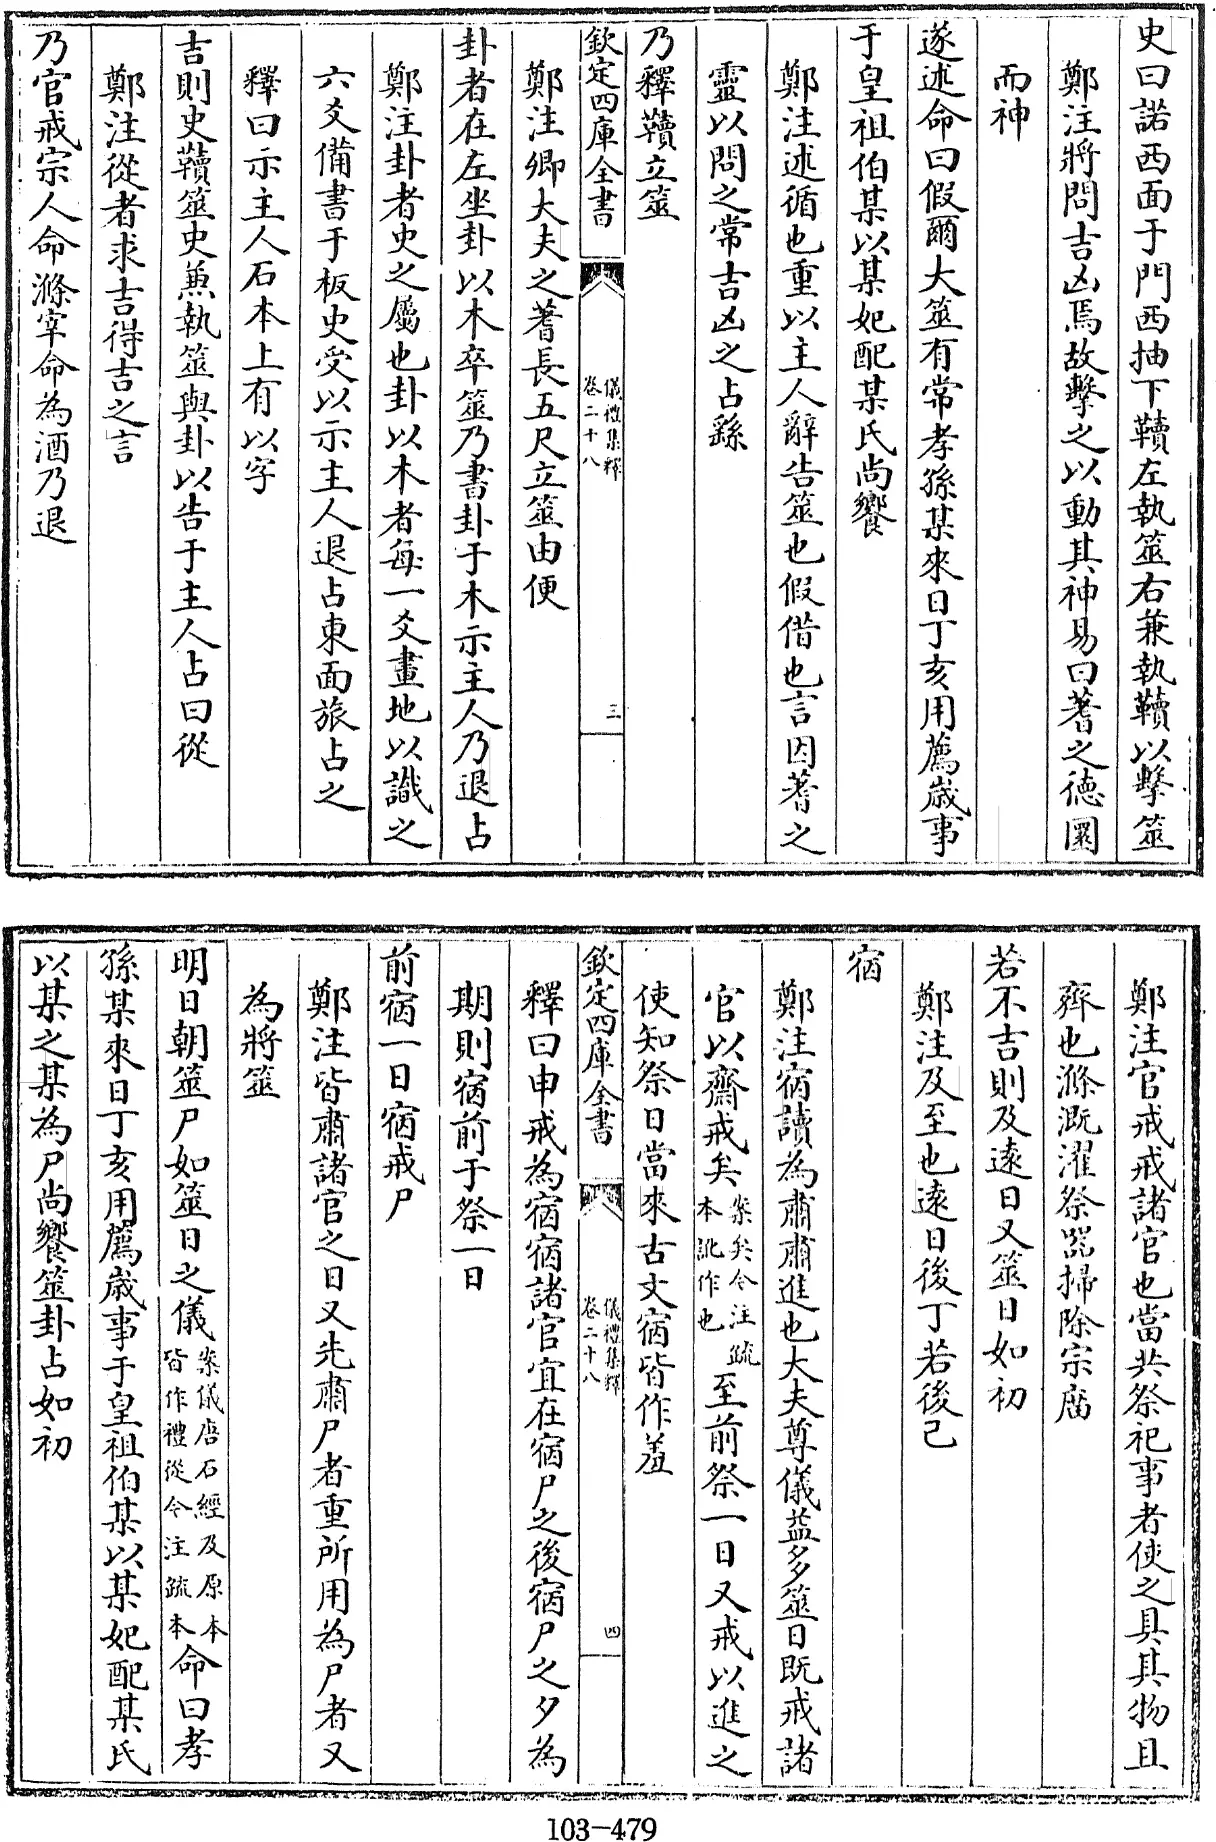 史曰諾西面于門西抽下韇左執筮右兼執韇以擊筮
鄭注將問吉凶焉故擊之以動其神易曰蓍之德圜
而神
遂述命曰假爾大筮有常孝孫某來日丁亥用薦歲事
于皇祖伯某以某妃配某氏尚饗
鄭注述循也重以主人辭告筮也假借也言因蓍之
靈以問之常吉凶之占繇
乃釋韇立筮
欽定四庫全書
儀禮集釋
卷二十八
三
鄭注卿大夫之蓍長五尺立筮由便
卦者在左坐卦以木卒筮乃書卦于木示主人乃退占
鄭注卦者史之屬也卦以木者每一爻畫地以識之
六爻備書于板史受以示主人退占東面旅占之
釋曰示主人石本上有以字
吉則史韇筮史兼執筮與卦以告于主人占曰從
鄭注從者求吉得吉之言
乃官戒宗人命滌宰命為酒乃退
鄭注官戒戒諸官也當共祭祀事者使之具其物且
齊也滌溉濯祭器掃除宗廟
若不吉則及遠日又筮日如初
鄭注及至也遠日後丁若後己
宿
鄭注宿讀為肅肅進也大夫尊儀益多筮日既戒諸
官以齋戒矣案矣今注疏本訛作也至前祭一日又戒以進之
使知祭日當來古文宿皆作羞
欽定四庫全書
儀禮集釋
卷二十八
四
釋曰申戒為宿宿諸官宜在宿尸之後宿尸之夕為
期則宿前于祭一日
前宿一日宿戒尸
鄭注皆肅諸官之日又先肅尸者重所用為尸者又
為將筮
明日朝筮尸如筮日之儀案儀唐石經及原本皆作禮從今注疏本命曰孝
孫某來日丁亥用薦歲事于皇祖伯某以某妃配某氏
以某之某為尸尚饗筮卦占如初
103-479